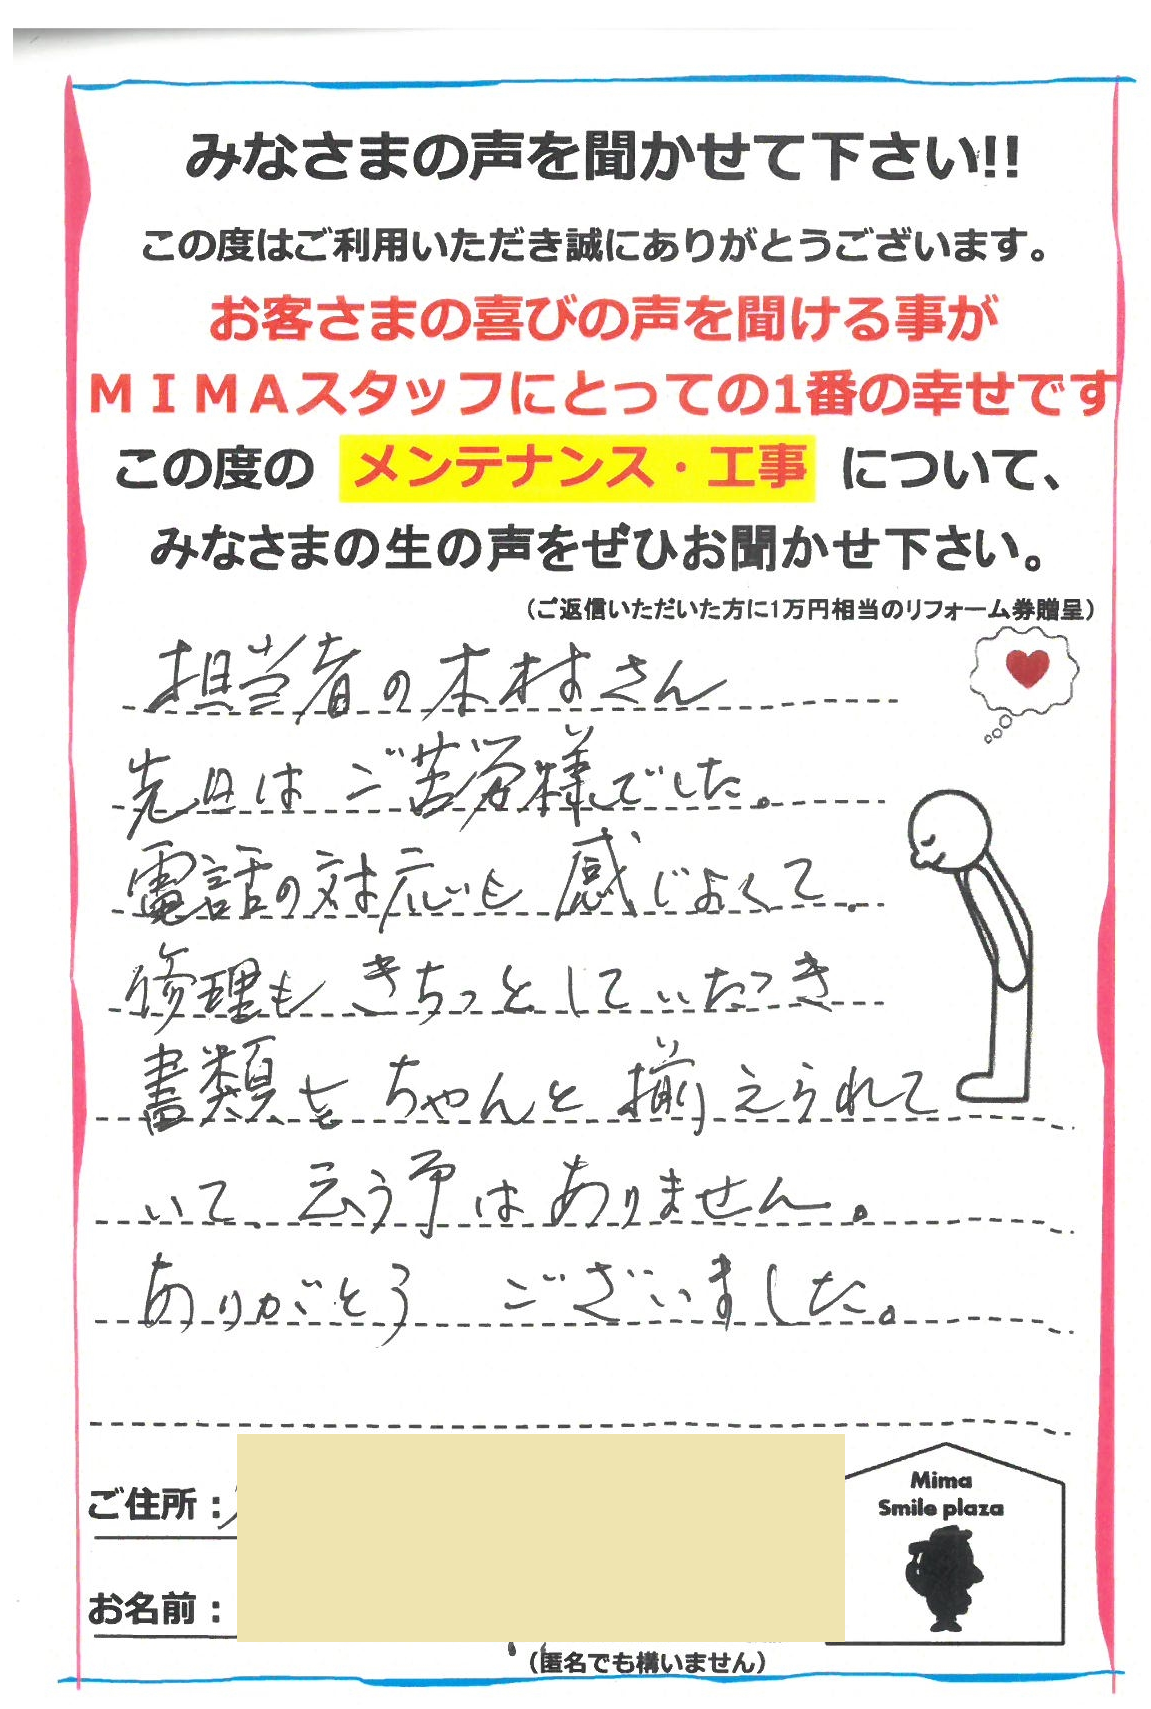 みなさまの声を聞かせて下さい!!
この度はご利用いただき誠にありがとうございます。
お客さまの喜びの声を聞ける事が
ＭＩＭＡスタッフにとっての1番の幸せです
この度の メンテナンス・工事 について、
みなさまの生の声をぜひお聞かせ下さい。
（ご返信いただいた方に1万円相当のリフォーム券贈呈）
担当者の木村さん
先日はご苦労様でした。
電話の対応も感じよくて、
修理もきちっとしていたゞき
書類もちゃんと揃えられて
いて、云う事はありません。
ありがとうございました。
ご住所：
Mima
Smile plaza
お名前：
（匿名でも構いません）